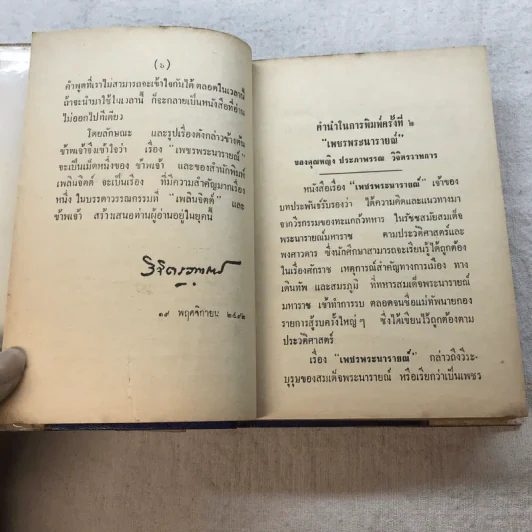 (๖)
คำพูดที่เราไม่สามารถจะเข้าใจกันได้ ตลอดในเวลานี้
ถ้าจะนำมาใช้ในเวลานี้ ก็จะกลายเป็นหนังสือที่อ่าน
ไม่ออกไปทีเดียว
โดยลักษณะ และรูปเรื่องดังกล่าวข้างต้น
ข้าพเจ้าจึงเข้าใจว่า เรื่อง "เพชรพระนารายณ์"
จะเป็นเม็ดหนึ่งของ ข้าพเจ้า และของสำนักพิมพ์
เพลินจิตต์ จะเป็นเรื่อง ที่มีความสำคัญมากเรื่อง
หนึ่ง ในบรรดาวรรณกรรมที่ "เพลินจิตต์" และ
ข้าพเจ้า สร้างเสนอต่านผู้อ่านอยู่ในยุคนี้
วิจิตรวาทการ
๑๙ พฤศจิกายน ๒๔๙๒
คำนำในการพิมพ์ครั้งที่ ๒
"เพชรพระนารายณ์"
ของคุณหญิง ประภาพรรณ วิจิตรวาทการ
หนังสือเรื่อง "เพชรพระนารายณ์" เจ้าของ
บทประพันธ์รับรองว่า ได้ความคิดและแนวทางมา
จากวีรกรรมของทะแกล้วทหาร ในรัชสมัยสมเด็จ
พระนารายณ์มหาราช ตามประวัติศาสตร์และ
พงศาวดาร ซึ่งนักศึกษาสามารถจะเรียนรู้ได้ถูกต้อง
ในเรื่องศักราช เหตุการณ์สำคัญทางการเมือง ทาง
เดินทัพ และสมรภูมิ ที่ทหารสมเด็จพระนารายณ์
มหาราช เข้าทำการรบ ตลอดจนชื่อแม่ทัพนายกอง
รายการสู้รบครั้งใหญ่ ๆ ซึ่งได้เขียนไว้ถูกต้องตาม
ประวัติศาสตร์
เรื่อง "เพชรพระนารายณ์" กล่าวถึงวีระ-
บุรุษของสมเด็จพระนารายณ์ หรือเรียกว่าเป็นเพชร